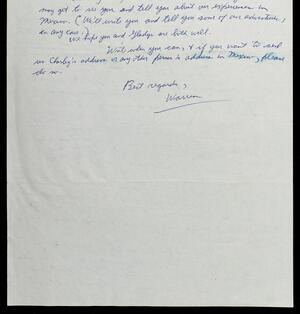 may get to see you and tell you about our experiences in
Mexico. (We'll write you and tell you some of our adventures,
in any case.)
We hope you and Gladys are both well.
Write when you can, & if you want to send
us Charley's address or any other person's address in Mexico, please
do so.
Best regards,
Warren